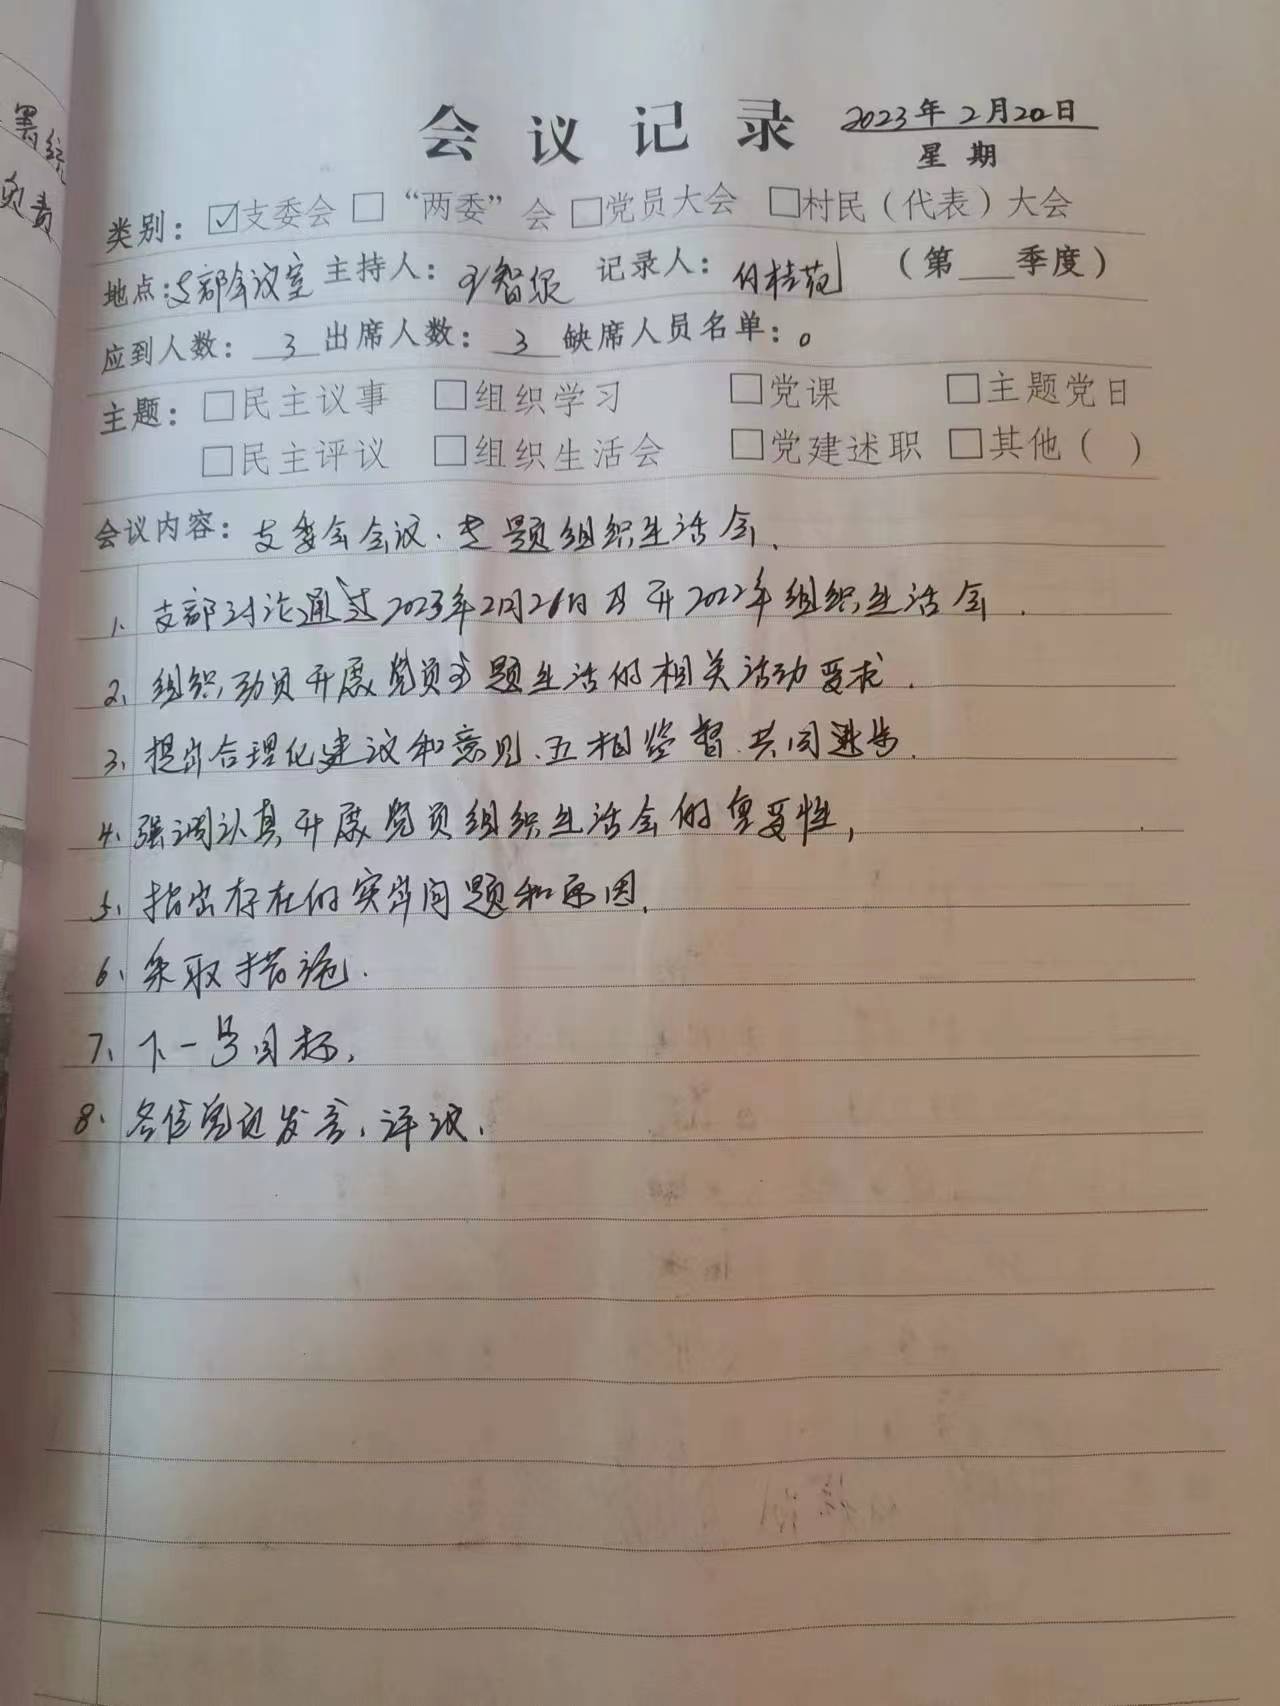 署统
负责
会议记录 2023年2月20日
星期
类别：☑支委会 □“两委”会 □党员大会 □村民（代表）大会
地点：支部会议室 主持人： 记录人：付桂苑 （第 季度）
应到人数：3 出席人数：3 缺席人员名单：0
主题：□民主议事 □组织学习 □党课 □主题党日
□民主评议 □组织生活会 □党建述职 □其他（ ）
会议内容：支委会会议. 专题组织生活会.
1、支部讨论通过2023年2月26日召开2022年组织生活会.
2、组织、动员开展党员主题生活的相关活动要求.
3、提出合理化建议和意见、互相监督、共同进步.
4、强调认真开展党员组织生活会的重要性,
5、指出存在的突出问题和原因.
6、采取措施.
7、下一步目标,
8、各位党员发言、评议,